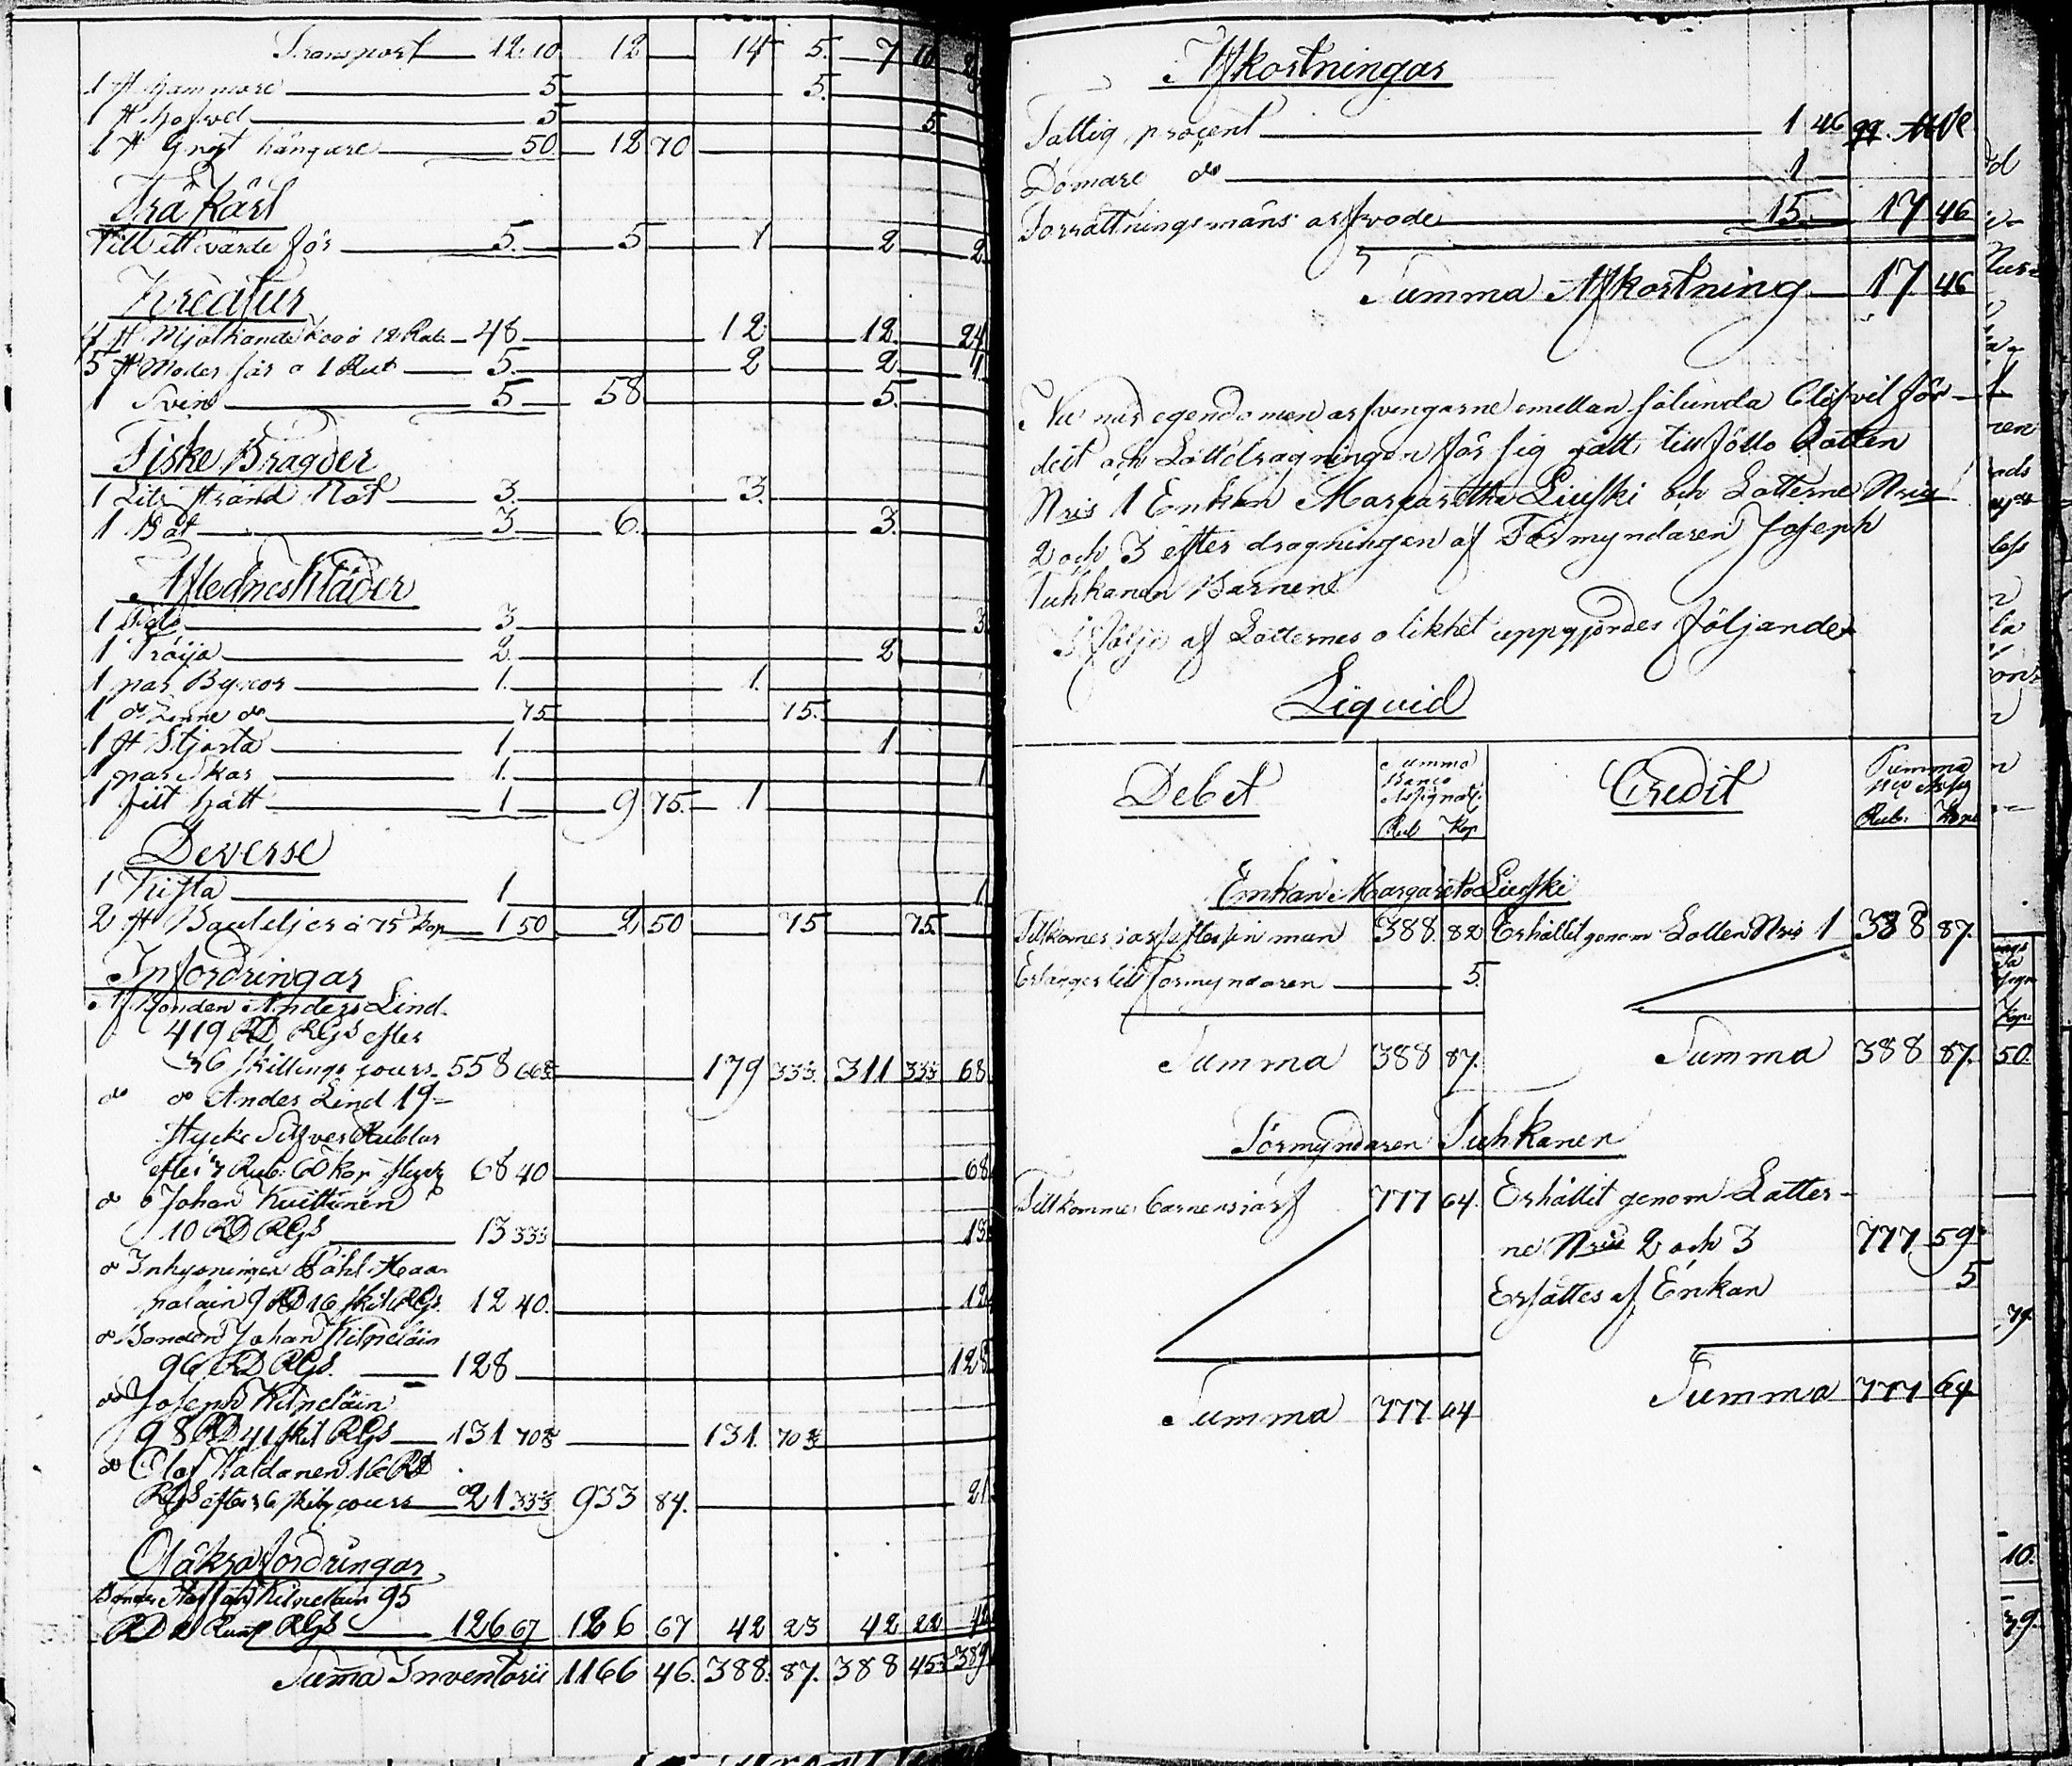 Transport 12 10 12 14 5 7 10
1 st Hammare 5 5
1 st 5 5
1 st hängare 50 12 70
Trä Kärl
Till ett värde för 5 5 1 2 2
Kreatur
4 st Mjölkande Koor à 12 Rub. 48 12 12 24
5 st Moder får a 1 Rub 5 2 2 1
1 Svin 5 58 5
Fiske Bragder
1 Lite strand Not 3 3
1 Båt 3 6 3
Aflednes Kläder
1 3 3
1 Tröija 2 2
1 par Byxor 1 1
1 do do 75 75
1 st Skjorta 1 1
1 par Skor 1 1
1 filt hatt 1 9 75 1
Deverse
1 Kista 1 1
2 st Bouteljer à 75 Kop 1 50 2 50 75 75
Infordringar
Af Bonden Anders Lind
419 RD RGS efter
36 skillings cours 558 66⅔ 179 33⅓ 311 33⅓ 68
do do Anders Lind 19
stycke Silfver Rublar
efter 3 Rub: 60 kop styck 68 40 68
do do Johan Kuittinen
10 RD RGS 13 33⅓ 13
do Inhysningen Påhl
9 RD 16 skil RGS 12 40 12
do Bonden Johan Kilpeläin
96 RD RGS 128 128
do Joseph Kilpeläin
98 RD 41 skil RGS 131 70 131 70
do Olof 16 RD
RGS efter 36 skilg cours 21 33⅓ 933 84 21
Osäkra fordringar
Bonden Staffan Kilpeläin 95
RD RGS 126 67 126 67 42 23 42 22 42
Suma Inventarii 1166 46 388 87 388 45 389
Afkortningar
Fattig procent 1 46
Domare do 1
Förrättningsmäns arfvode 15 17 46
Summa Afkortning 17 46
Nu när egendomen arfvingarne emellan sålunda blifvit för-
delt och Lottdragningen för sig gått, tillföllo Lotten
Nris 1 Enkan Margaretha Liufski och Lotterne Nris
2 och 3 efter dragningen af Förmyndaren Joseph
Tuhkanen Barnene
I följe af Lotternes olikhet uppgjordes följande
Liqvid
Debet
Summa Banco Assignat:
Rub Kop
Credit
Summa Bco Assig
Rub: Kop
Enkan Margareta Liufski
Tillkomer i arf efter sin man 388 82 Erhållit genom Lotten Nris 1 388 87
Erlänger till förmyndaren 5
Summa 388 87 Summa 388 87
Förmyndaren Tuhkanen
Tillkommer barnens i arf 777 64 Erhållit genom Lotter-
ne Nris 2 och 3 777 59
Ersättes af Enkan 5
Summa 777 64 Summa 777 64
50
79
10
39